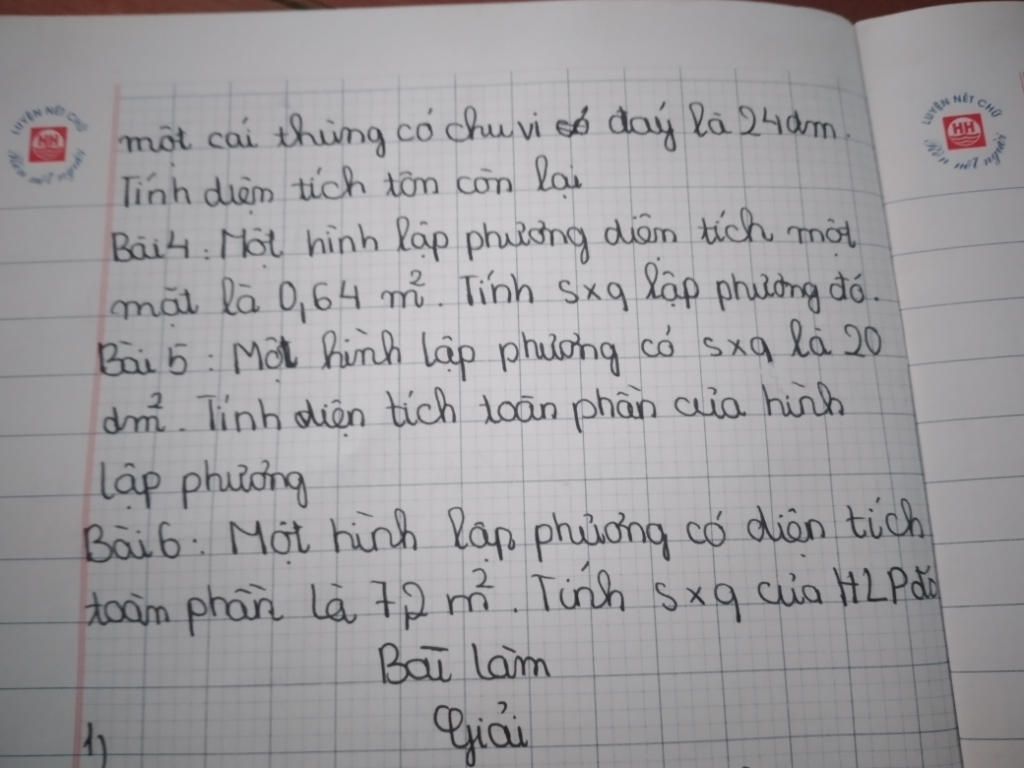 LUYỆN NÉT CHỮ
HH
Rèn nết người
LUYỆN NÉT CHỮ
HH
Rèn nết người
một cái thùng có chu vi đáy là 24dm.
Tính diện tích tôn còn lại
Bài 4: Một hình lập phương diện tích một
mặt là 0,64 m². Tính sxq lập phương đó.
Bài 5: Một hình lập phương có sxq là 20
dm². Tính diện tích toàn phần của hình
lập phương
Bài 6: Một hình lập phương có diện tích
toàn phần là 7,2 m². Tính sxq của HLP đó
Bài làm
1) Giải